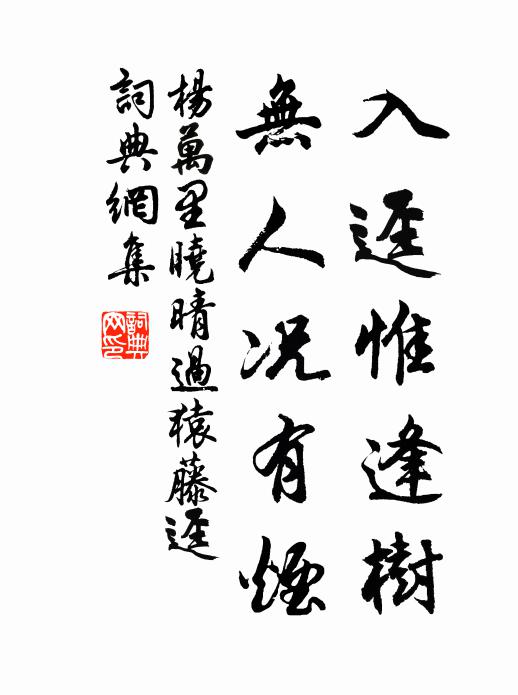 入逕惟逢樹
無人況有煙
楊萬里曉晴過猿藤逕
詞典網集
詞典網印